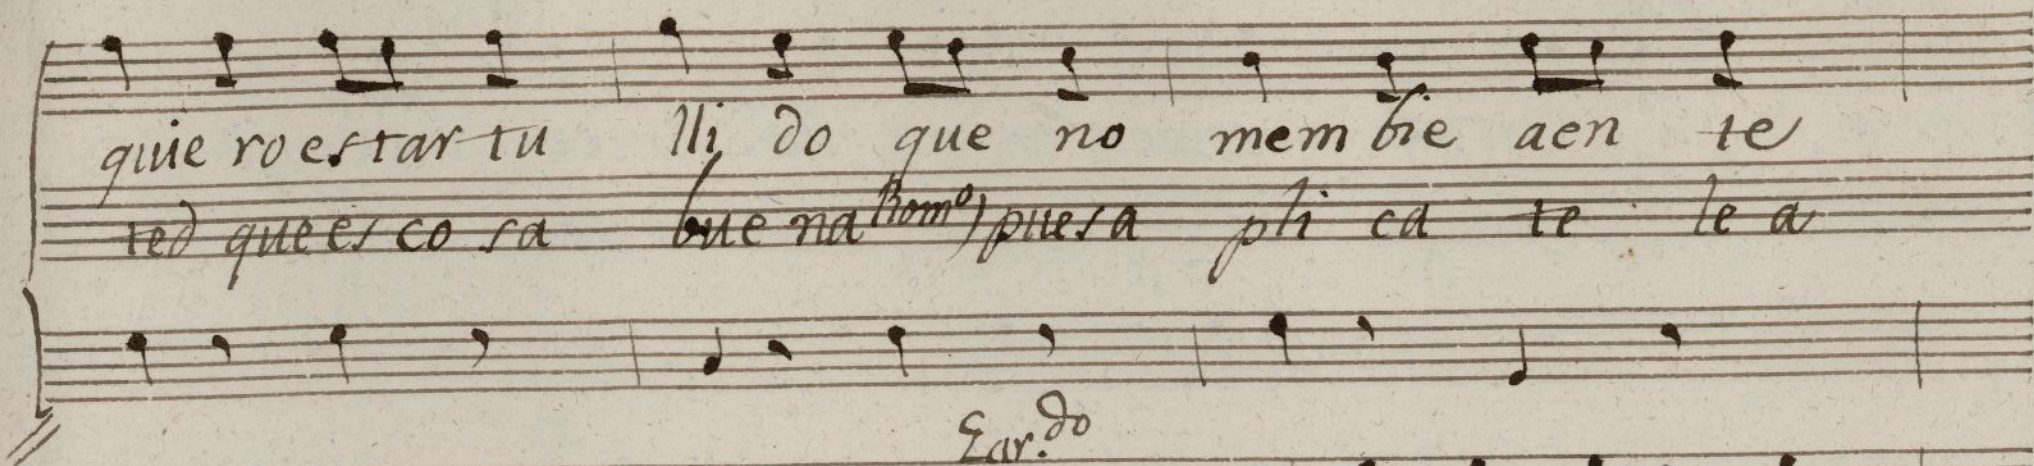 quie ro estar tu lli do que no mem bie aen te
ted que es co sa bue na Romo) pues a pli ca te le a
Ear.do